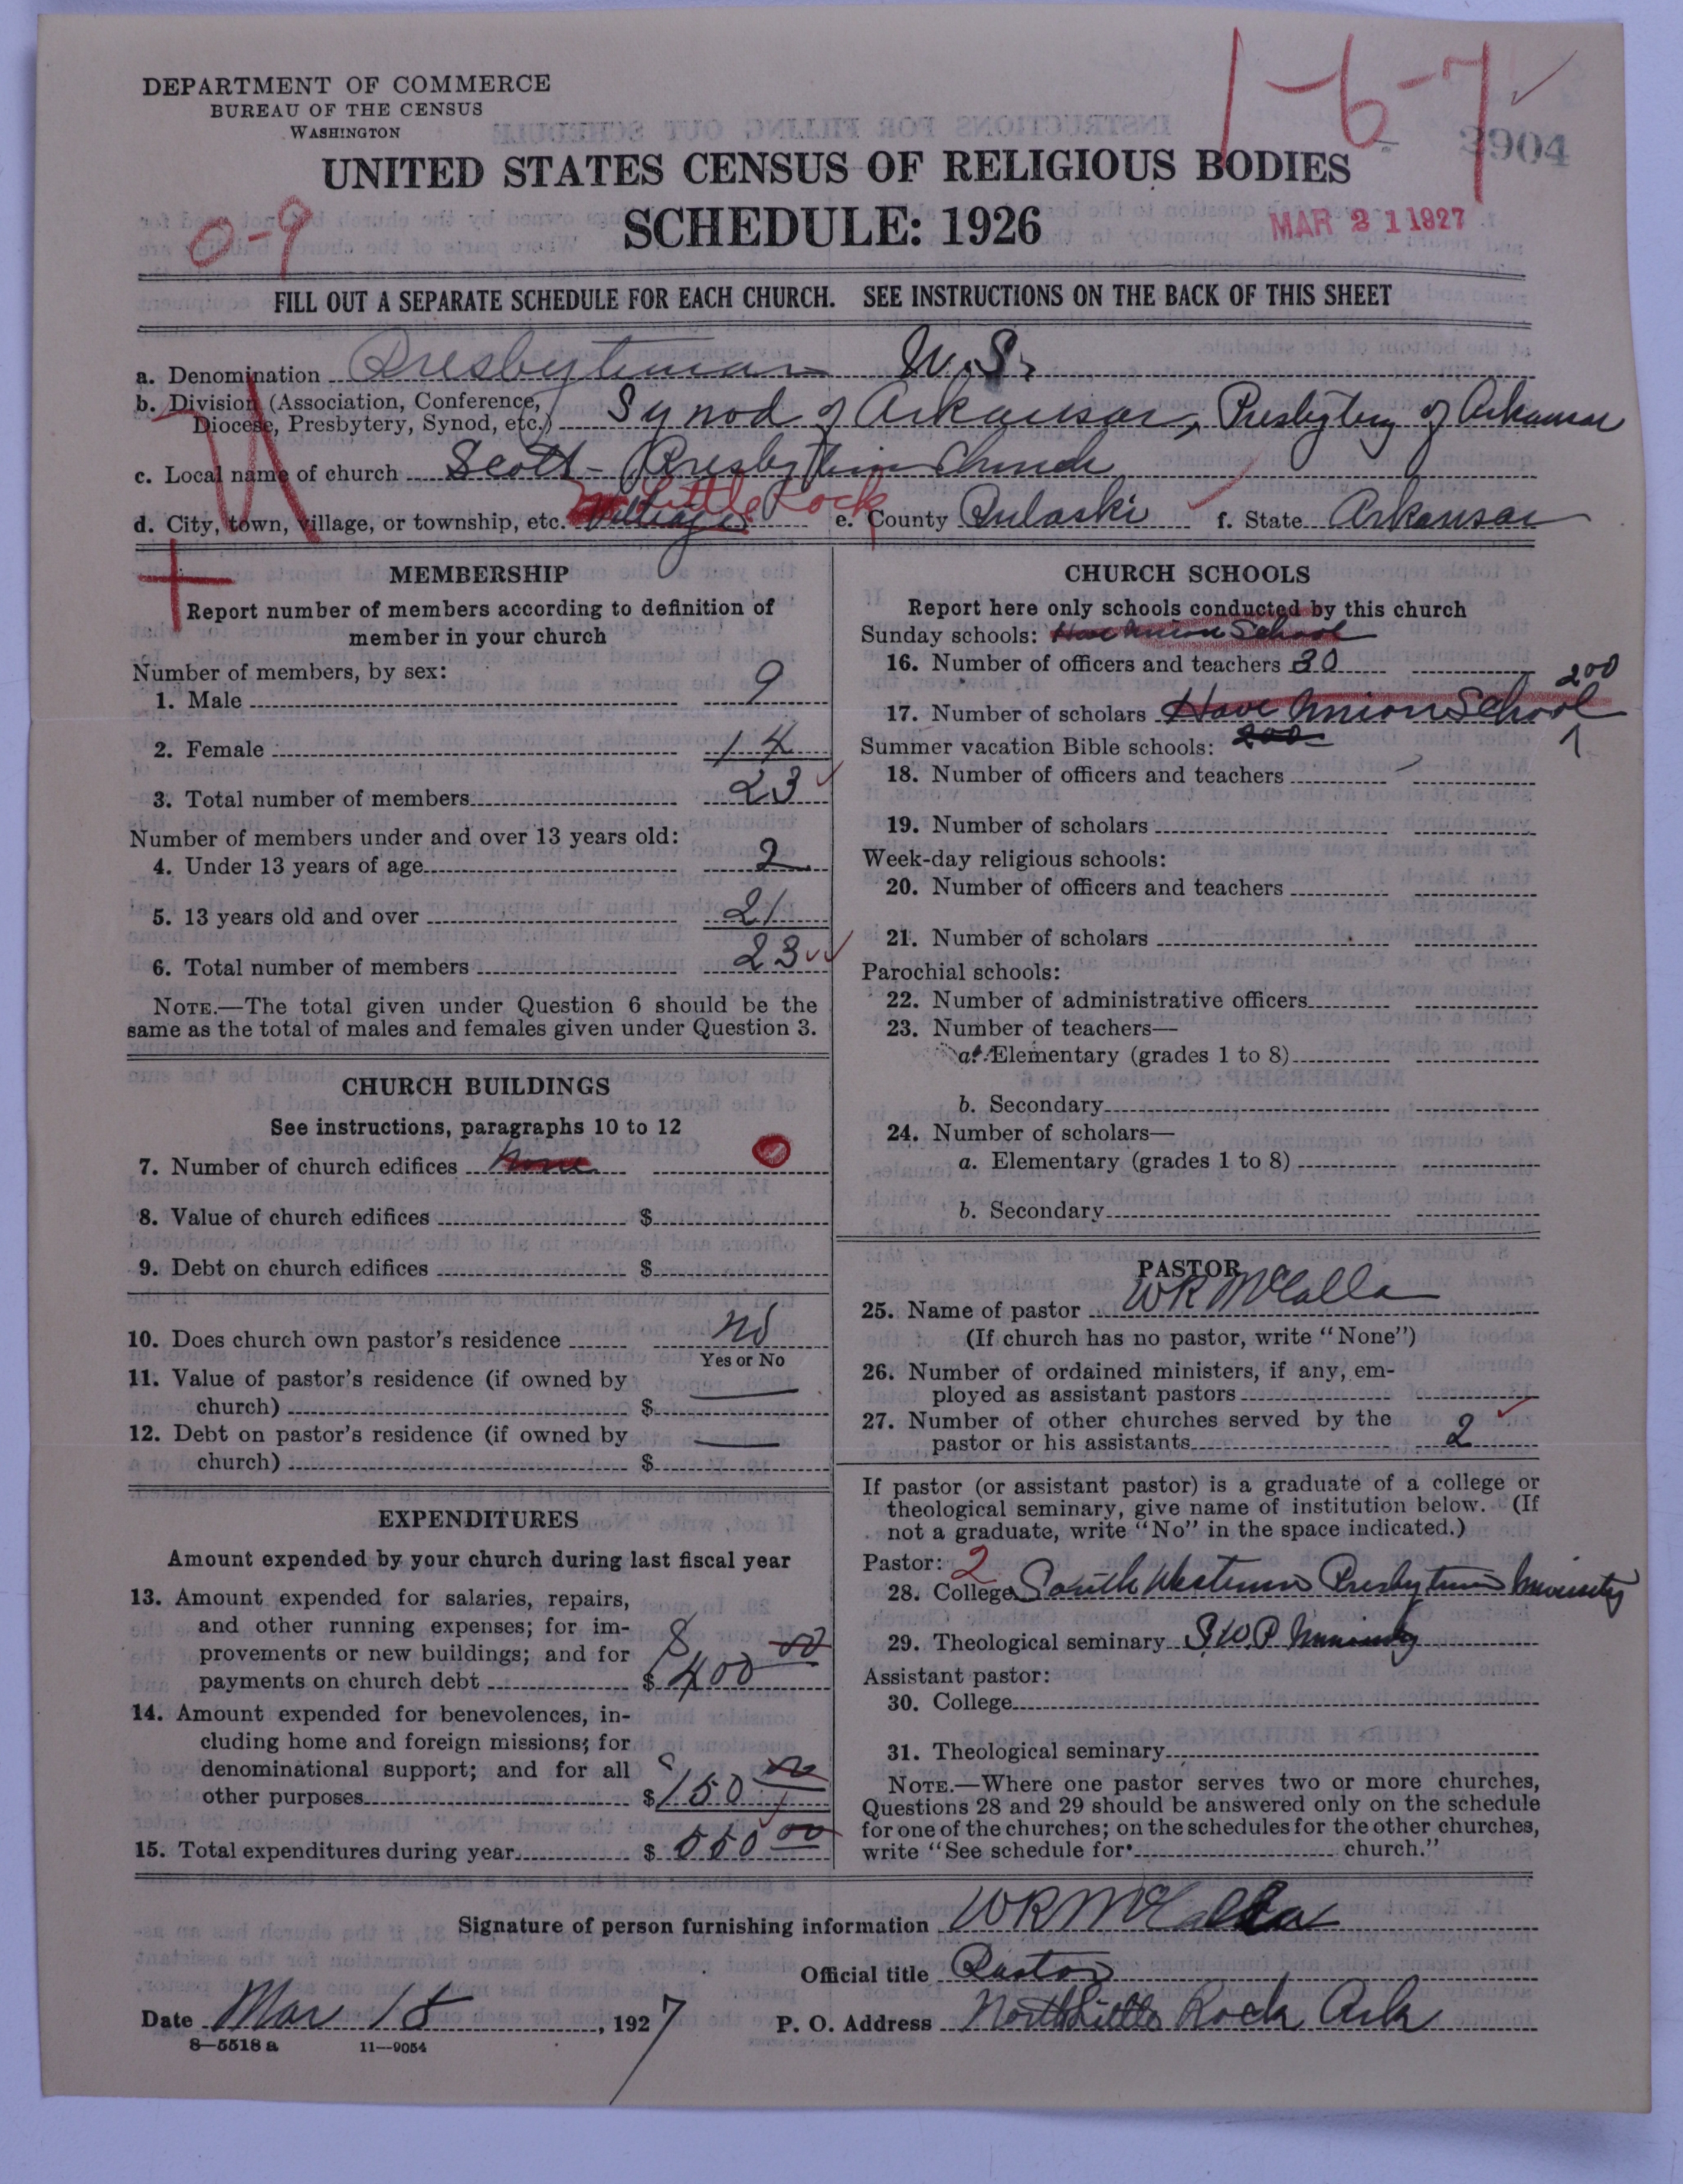 DEPARTMENT OF COMMERCE
BUREAU OF THE CENSUS
WASHINGTON
1-6-7
3904
UNITED STATES CENSUS OF RELIGIOUS BODIES
SCHEDULE: 1926
0-9
MAR 21 1927
FILL OUT A SEPARATE SCHEDULE FOR EACH CHURCH. SEE INSTRUCTIONS ON THE BACK OF THIS SHEET
a. Denomination Presbyterian U.S.
b. Division (Association, Conference, Diocese, Presbytery, Synod, etc.) Synod of Arkansas, Presbytery of Arkansas
c. Local name of church Scott - Presbyterian Church
d. City, town, village, or township, etc. Village Little Rock e. County Pulaski f. State Arkansas
MEMBERSHIP
Report number of members according to definition of
member in your church
Number of members, by sex:
1. Male 9
2. Female 14
3. Total number of members 23
Number of members under and over 13 years old:
4. Under 13 years of age 2
5. 13 years old and over 21
6. Total number of members 23
NOTE.—The total given under Question 6 should be the
same as the total of males and females given under Question 3.
CHURCH BUILDINGS
See instructions, paragraphs 10 to 12
7. Number of church edifices None 0
8. Value of church edifices $
9. Debt on church edifices $
10. Does church own pastor's residence No
Yes or No
11. Value of pastor's residence (if owned by
church) $
12. Debt on pastor's residence (if owned by
church) $
EXPENDITURES
Amount expended by your church during last fiscal year
13. Amount expended for salaries, repairs,
and other running expenses; for im-
provements or new buildings; and for
payments on church debt $ 400 00
14. Amount expended for benevolences, in-
cluding home and foreign missions; for
denominational support; and for all
other purposes $ 150 00
15. Total expenditures during year $ 550 00
CHURCH SCHOOLS
Report here only schools conducted by this church
Sunday schools: Have Union School
16. Number of officers and teachers 30
200
17. Number of scholars Have Union School
Summer vacation Bible schools: 200 1
18. Number of officers and teachers
19. Number of scholars
Week-day religious schools:
20. Number of officers and teachers
21. Number of scholars
Parochial schools:
22. Number of administrative officers
23. Number of teachers—
a. Elementary (grades 1 to 8)
b. Secondary
24. Number of scholars—
a. Elementary (grades 1 to 8)
b. Secondary
PASTOR
25. Name of pastor W R McCalla
(If church has no pastor, write "None")
26. Number of ordained ministers, if any, em-
ployed as assistant pastors
27. Number of other churches served by the
pastor or his assistants 2
If pastor (or assistant pastor) is a graduate of a college or
theological seminary, give name of institution below. (If
not a graduate, write "No" in the space indicated.)
Pastor: 2
28. College South Western Presbyterian University
29. Theological seminary S.W.P. University
Assistant pastor:
30. College
31. Theological seminary
NOTE.—Where one pastor serves two or more churches,
Questions 28 and 29 should be answered only on the schedule
for one of the churches; on the schedules for the other churches,
write "See schedule for church."
Signature of person furnishing information W R McCalla
Official title Pastor
Date Mar 18, 1927 P. O. Address North Little Rock Ark
8—5518 a 11—9054